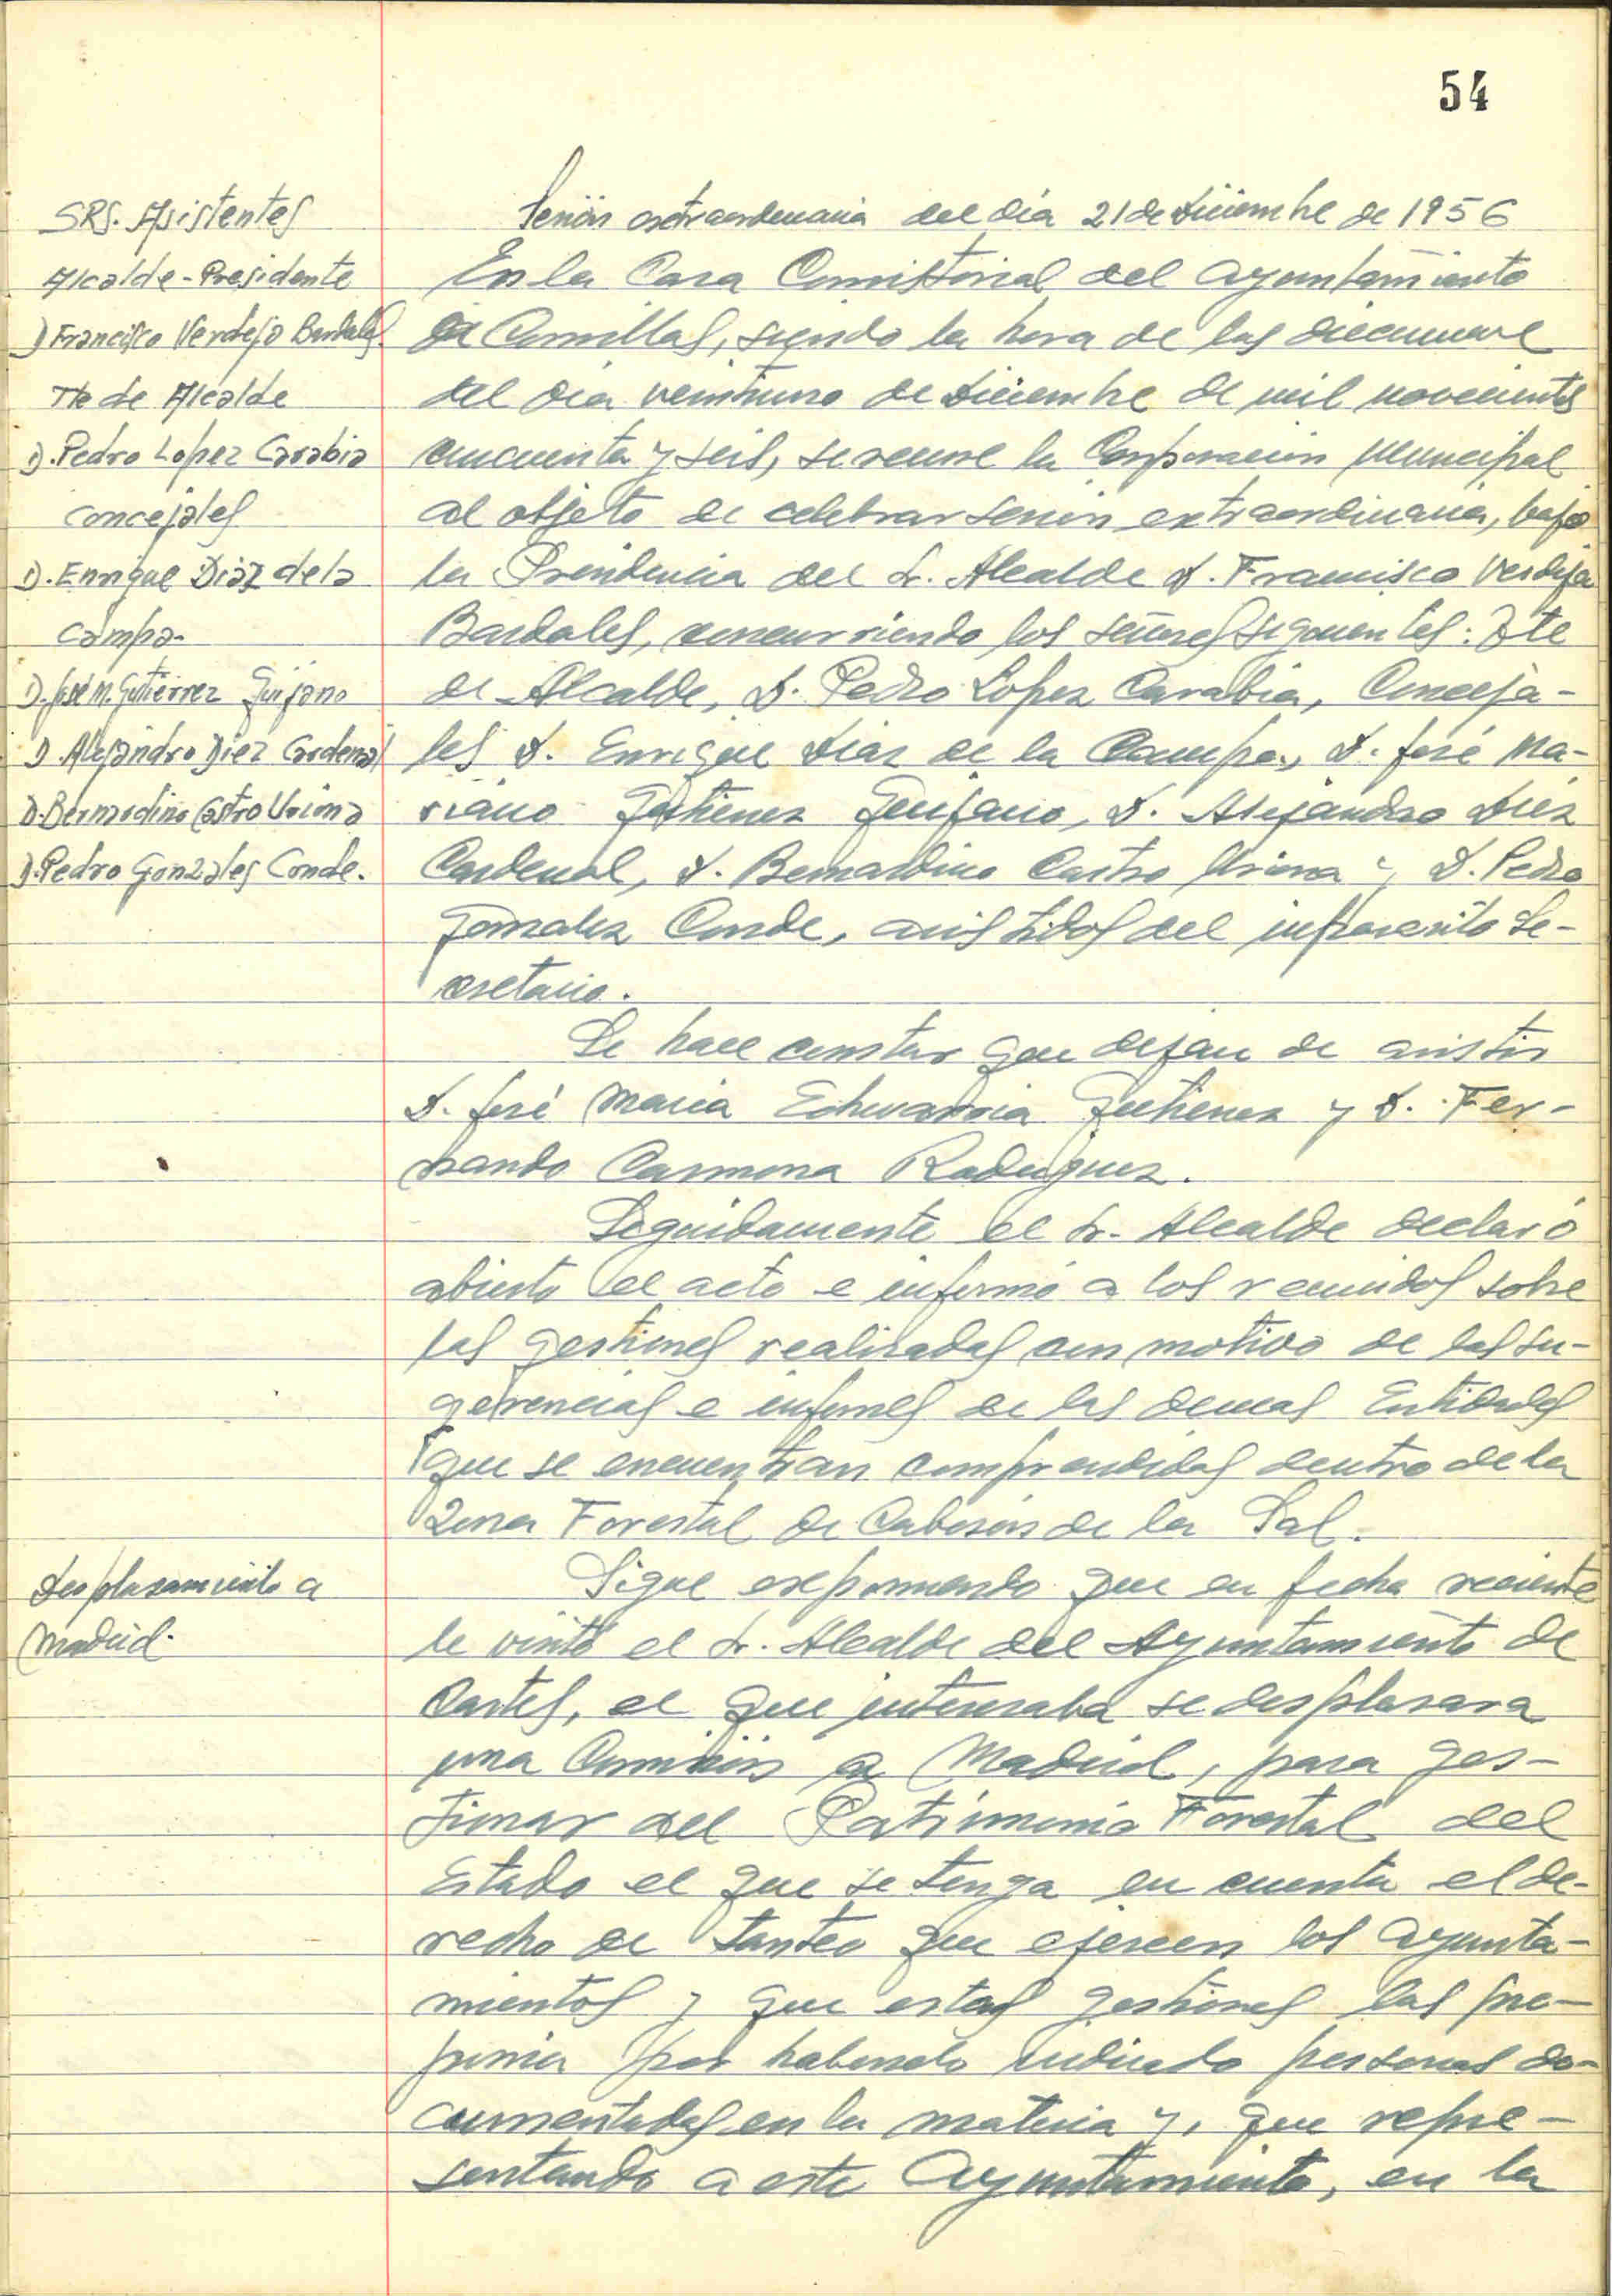 54
SRS. Asistentes
Alcalde-Presidente
D. Francisco Verdeja Bardales.
Tte de Alcalde
D. Pedro Lopez Carabia
Concejales
D. Enrique Diaz de la
Campa.
D. José M. Gutiérrez Guijano
D. Alejandro Diez Cardenal
D. Bernardino Castro Uriona
D. Pedro Gonzales Conde.
Sesión extraordinaria del día 21 de Diciembre de 1956
En la Casa Consistorial del Ayuntamiento
de Comillas, siendo la hora de las diecinueve
del día veintiuno de Diciembre de mil novecientos
cincuenta y seis, se reune la Corporación Municipal
al objeto de celebrar sesión extraordinaria, bajo
la Presidencia del Sr. Alcalde D. Francisco Verdeja
Bardales, concurriendo los señores siguientes: Tte
de Alcalde, D. Pedro Lopez Carabia, Conceja-
les D. Enrique Diaz de la Campa, D. José Ma-
riano Gutierrez Guijano, D. Alejandro Diez
Cardenal, D. Bernardino Castro Uriona y D. Pedro
Gonzalez Conde, asistidos del infrascrito Se-
cretario.
Se hace constar que dejan de asistir
D. José Maria Echevarria Gutierrez y D. Fer-
nando Carmona Rodriguez.
Seguidamente el Sr. Alcalde declaró
abierto el acto e informó a los reunidos sobre
las gestiones realizadas con motivo de las su-
gerencias e informes de las demas Entidades
que se encuentran comprendidas dentro de la
Zona Forestal de Cabezón de la Sal.
Desplazamiento a
Madrid.
Sigue exponiendo que en fecha reciente
le visitó el Sr. Alcalde del Ayuntamiento de
Cartes, el que interesaba se desplazara
una Comisión a Madrid, para ges-
tionar del Patrimonio Forestal del
Estado el que se tenga en cuenta el de-
recho de tanteo que ejercen los Ayunta-
mientos y que estas gestiones las pro-
ponia por haberselo indicado personas do-
cumentadas en la materia y, que repre-
sentando a este Ayuntamiento, en la